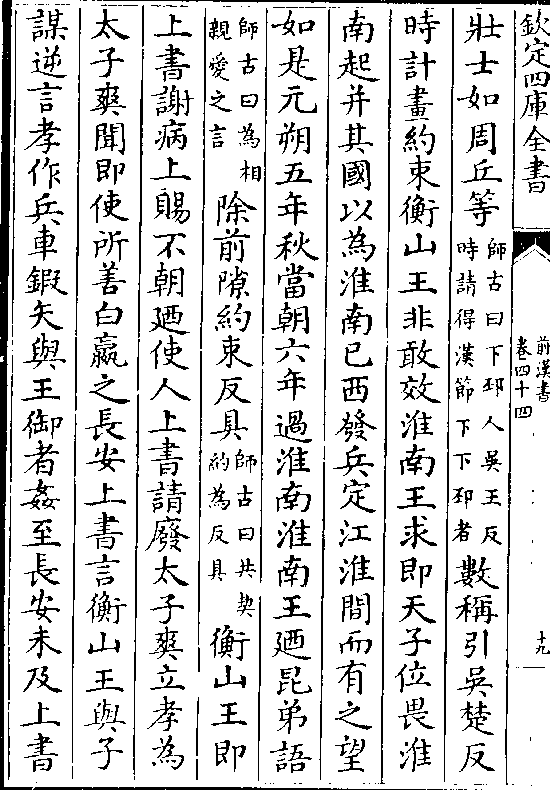 欽定四庫全書
前漢書
卷四十四
十九
壯士如周丘等師古曰下邳人吳王反時請得漢節下下邳者數稱引吳楚反
時計畫約束衡山王非敢效淮南王求即天子位畏淮
南起并其國以為淮南已西發兵定江淮間而有之望
如是元朔五年秋當朝六年過淮南淮南王廼昆弟語
師古曰為相親愛之言除前隙約束反具師古曰共契約為反具衡山王即
上書謝病上賜不朝廼使人上書請廢太子爽立孝為
太子爽聞即使所善白嬴之長安上書言衡山王與子
謀逆言孝作兵車鍜矢與王御者姦至長安未及上書